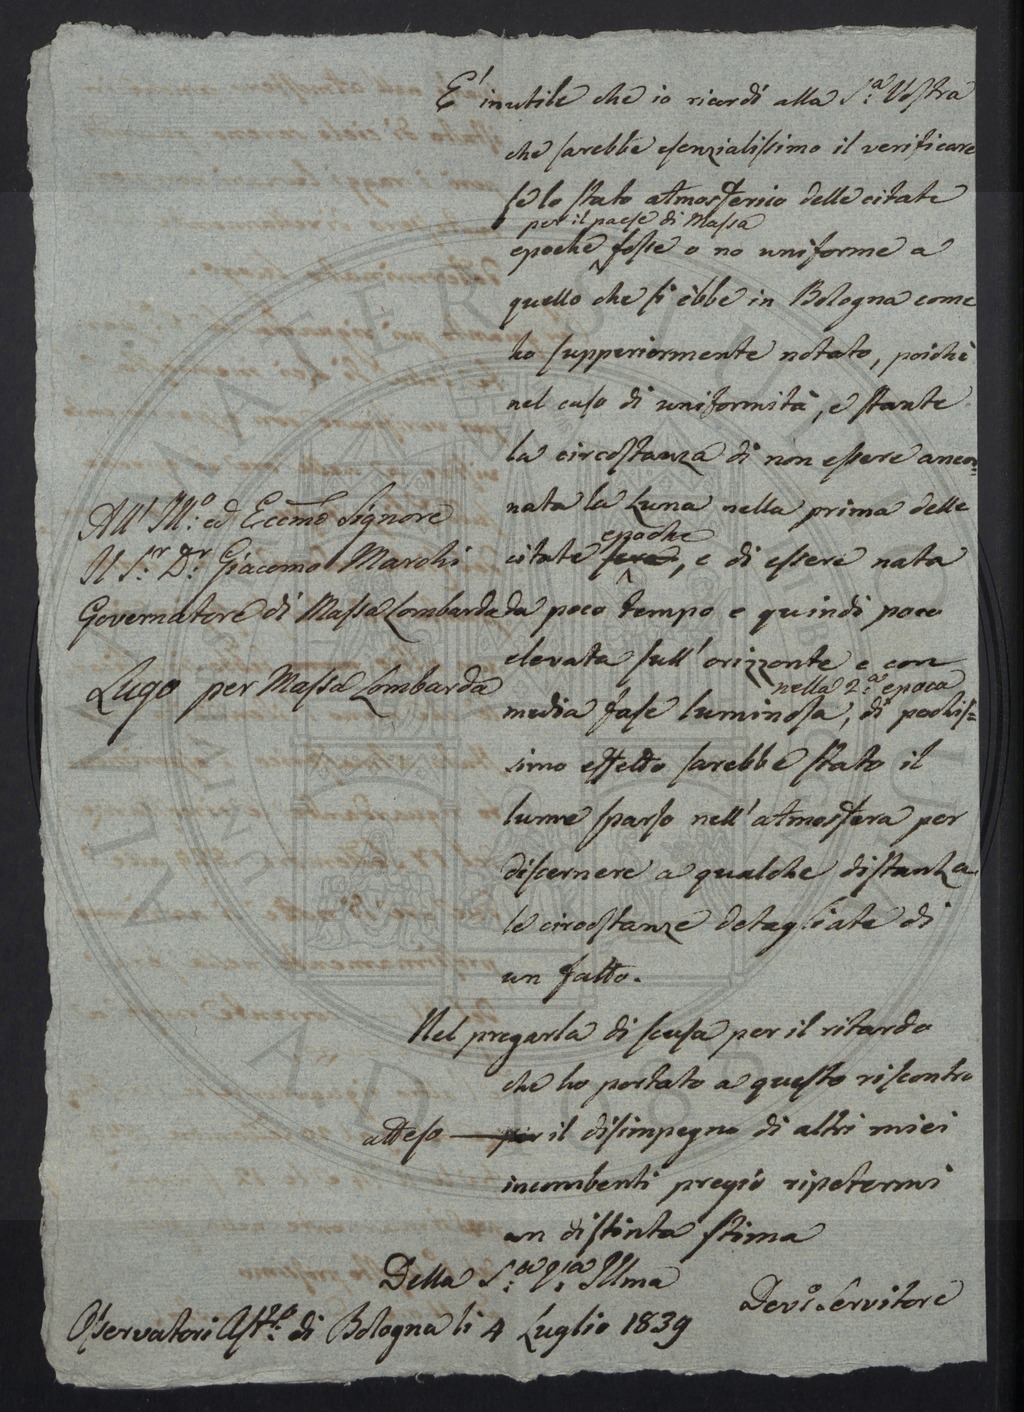 E' inutile che io ricordi alla S.ª Vostra
che sarebbe esenzialissimo il verificare
se lo stato atmosferico delle citate
per il paese di Massa
epoche fosse o no uniforme a
quello che si ebbe in Bologna come
ho supperiormente notato, poichè
nel caso di uniformità, e stante
la circostanza di non essere ancor=
nata la Luna nella prima delle
epoche
citate sere, e di essere nata
da poco tempo e quindi poco
elevata sull'orizzonte e con
nella 2.ª epoca
media fase luminosa, di pochis=
simo effetto sarebbe stato il
lume sparso nell'atmosfera per
discernere a qualche distanza
le circostanze detagliate di
un fatto.
Nel pregarla di scusa per il ritardo
che ho portato a questo riscontro
atteso — per il disimpegno di altri miei
incombenti pregio ripetermi
con distinta stima
Della S.ª V.ª Illma
Dev.º Servitore
Osservatori Ast.co di Bologna li 4 Luglio 1839
All' Ill.º ed Eccmo Signore
Il S.r D.r Giacomo Marchi
Governatore di Massa Lombarda
Lugo per Massa Lombarda